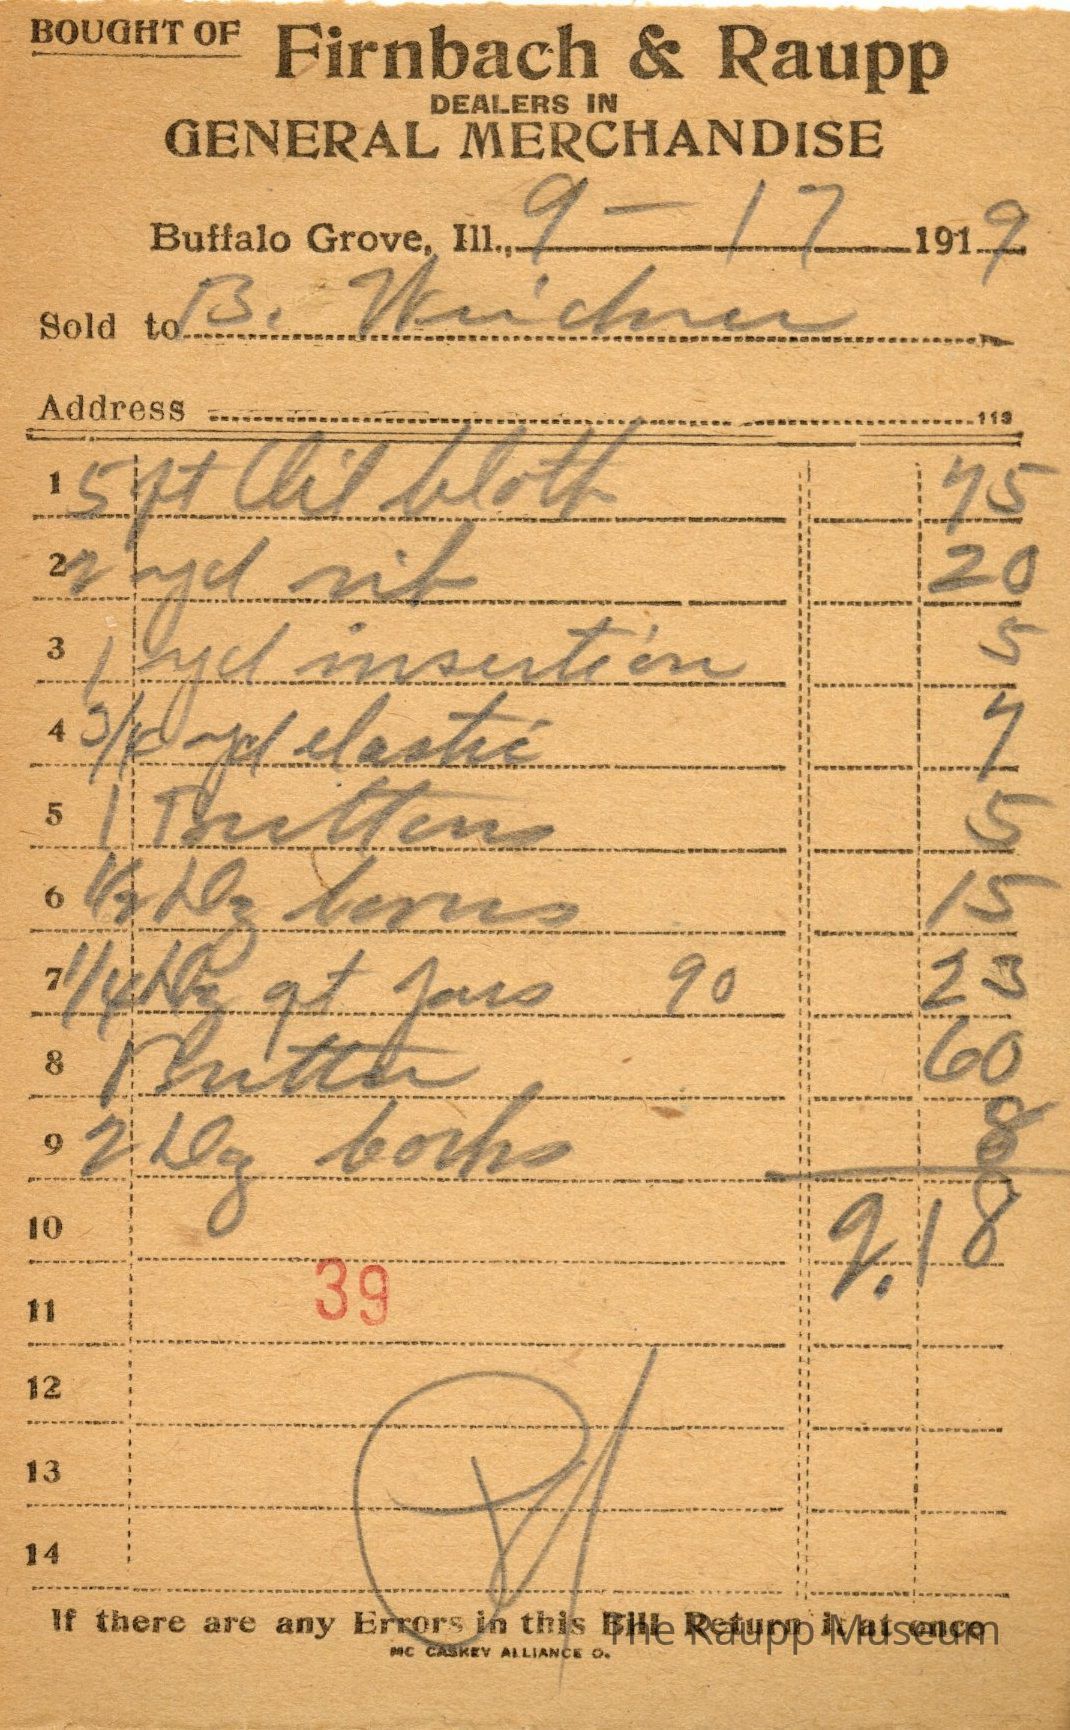 BOUGHT OF Firnbach & Raupp
DEALERS IN
GENERAL MERCHANDISE
Buffalo Grove, Ill., 9-17 1919
Sold to B. Weidner
Address 113
1 5 ft Oil Cloth 75
2 2 yd rib 20
3 1 yd insertion 5
4 3/4 yd elastic 7
5 1 Buttons 5
6 1/2 Dz 15
7 1/4 Dz qt Jars 90 23
8 Butter 60
9 2 Dz Corks 8
10 2.18
11 39
12
13
14
If there are any Errors in this Bill Return it at once
MC CASKEY ALLIANCE O.
The Raupp Museum